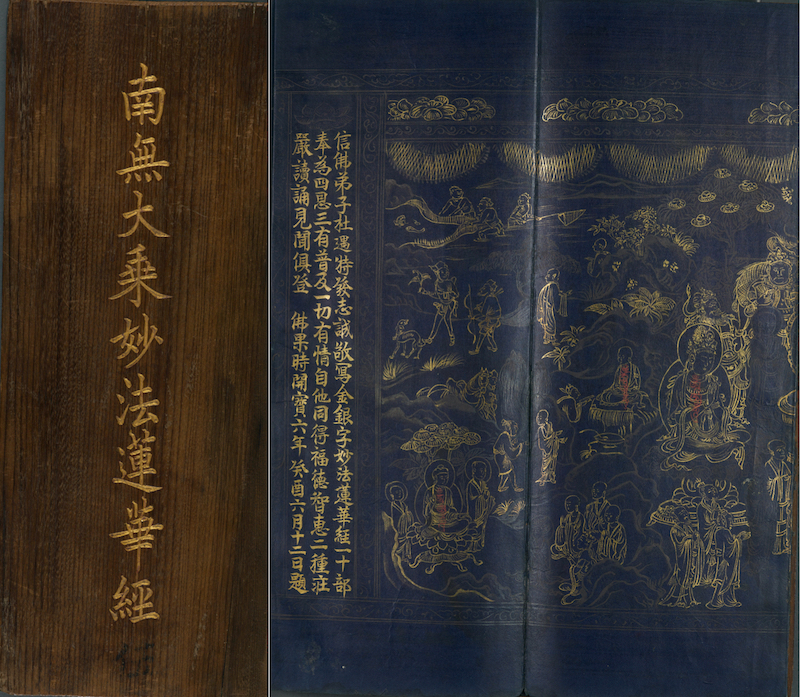 南無大乘妙法蓮華經
信佛弟子杜遇特發志誠敬寫金銀字妙法蓮華經一十部
奉為四恩三有普及一切有情自他同得福德智惠二種莊
嚴讀誦見聞俱登　佛果時開寶六年癸酉六月十二日題